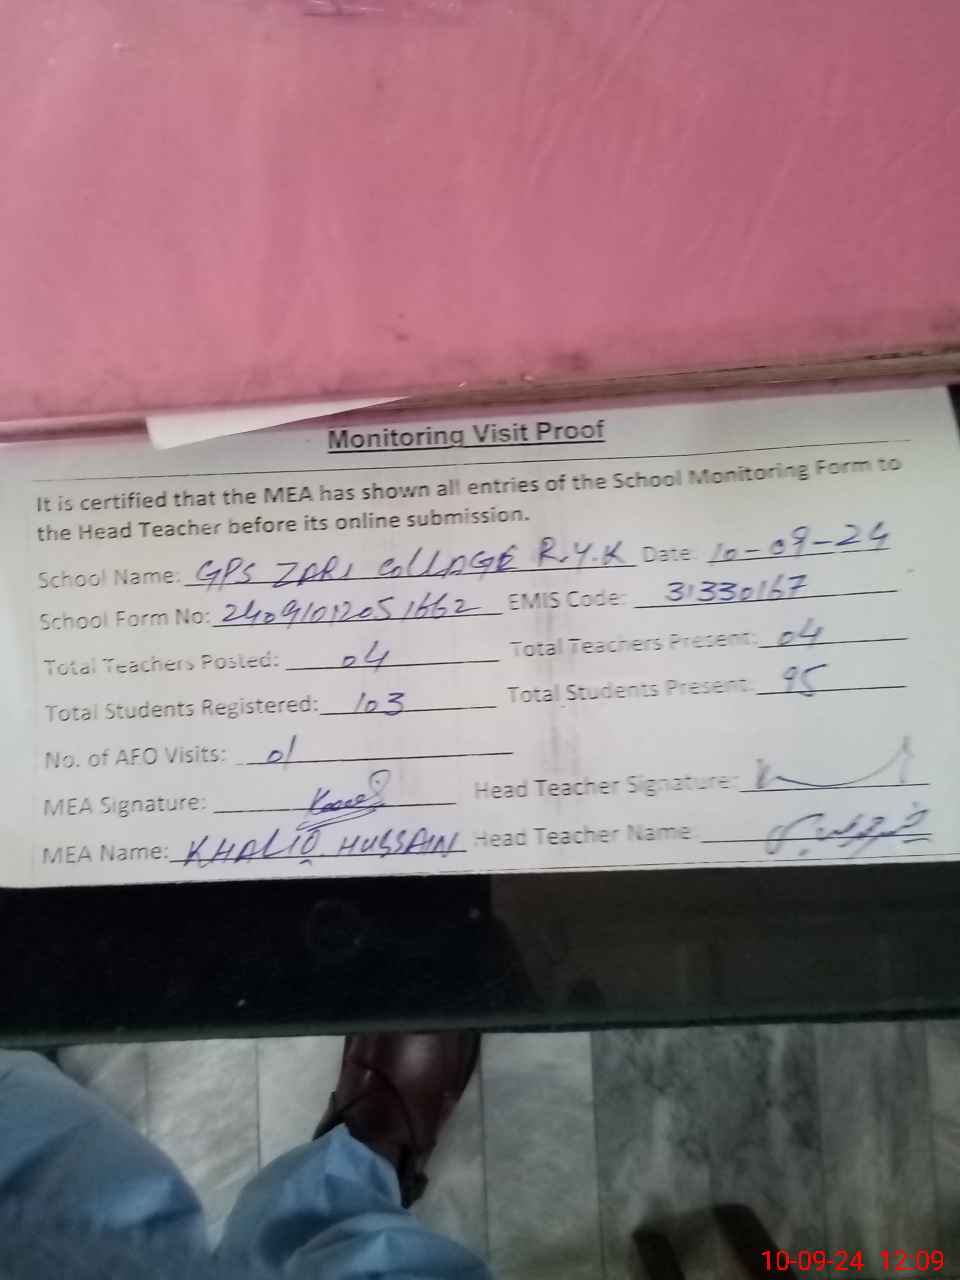 Monitoring Visit Proof
It is certified that the MEA has shown all entries of the School Monitoring Form to
the Head Teacher before its online submission.
School Name: GPS ZARI COLLAGE R.Y.K Date: 10-09-24
School Form No: 24091012051662 EMIS Code: 31330167
Total Teachers Posted: 04 Total Teachers Present: 04
Total Students Registered: 103 Total Students Present: 95
No. of AEO Visits: 01
MEA Signature: Head Teacher Signature:
MEA Name: KHALID HUSSAIN Head Teacher Name:
10-09-24 12:09